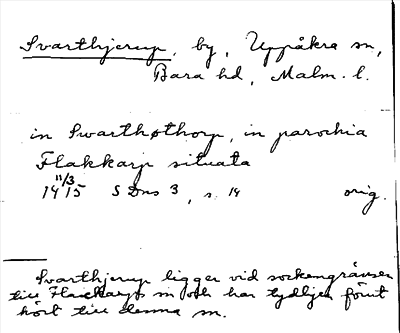 Svarthjerup, by, Uppåkra sn,
Bara hd, Malm. l.
in Swarthøthorp, in parochia
Flakkarp situata
11/3
1415 SDns 3, s. 14 orig.
Svarthjerup ligger vid sockengränsen
till Flackarps sn och har tydligen förut
hört till denna sn.